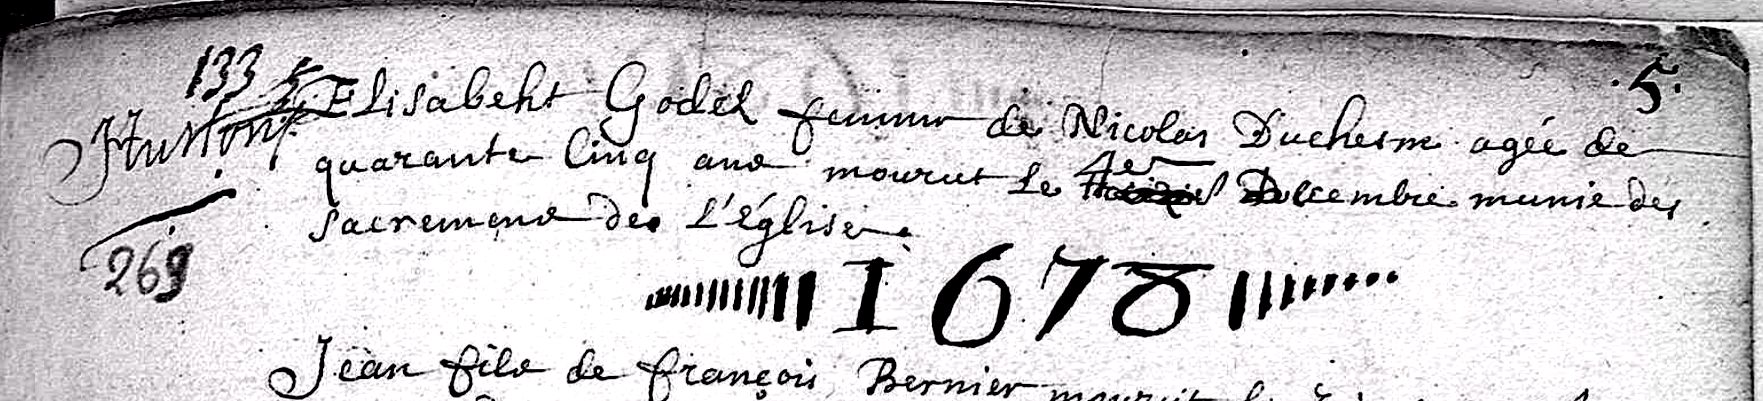 133
5.
Elisabeht Godel femme de Nicolas Duchesne agée de
quarante Cinq ans mourut le 4er Decembre munie des
sacremens de L'église.
269
1678
Jean fils de françois Bernier mourut le